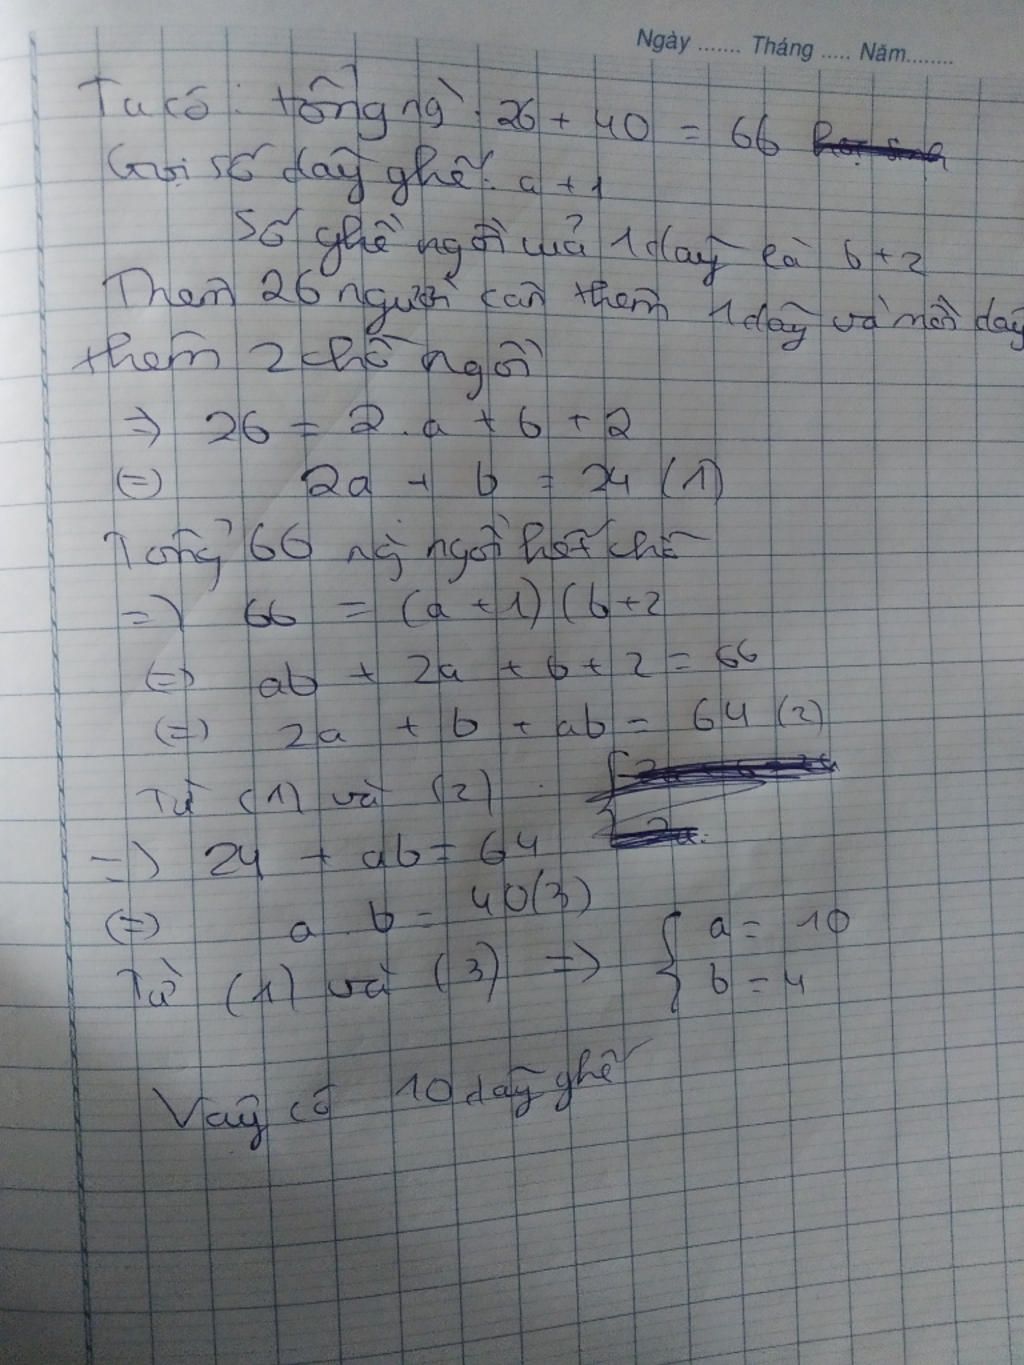 Ngày ....... Tháng ..... Năm........
Ta có : tổng ng` : 26 + 40 = 66
Gọi số dãy ghế : a + 1
Số ghế ngồi của 1 dãy là b + 2
Thêm 26 người cần thêm 1 dãy và mỗi dãy
thêm 2 chỗ ngồi
=> 26 = 2 . a + b + 2
(=) 2a + b = 24 (1)
Tổng 66 ng ngồi hết chỗ
=> 66 = (a + 1) (b + 2
(=) ab + 2a + b + 2 = 66
(=) 2a + b + ab = 64 (2)
Từ (1) và (2)
=> 24 + ab = 64
(=) a . b = 40 (3)
Từ (1) và (3) => { a = 10
b = 4
Vậy có 10 dãy ghế